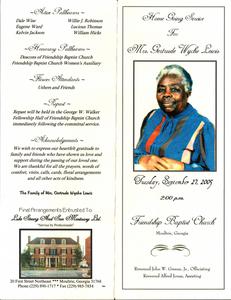 ~Active Pallbearers~
Dale Wise
Eugene Ward
Kelvin Jackson
Willie J. Robinson
Lucious Thomas
William Hicks
~Honorary Pallbearers~
Deacons of Friendship Baptist Church
Friendship Baptist Church Women's Auxiliary
~Flower Attendants~
Ushers and Friends
~Repast~
Repast will be held in the George W. Walker
Fellowship Hall of Friendship Baptist Church
immediately following the committal service.
~Acknowledgments~
We wish to express our heartfelt gratitude to
family and friends who have shown us love and
support during the passing of our loved one.
We are thankful for all the prayers, words of
comfort, visits, calls, cards, floral arrangements
and all other acts of kindness.
The Family of Mrs. Gertrude Wyche Lewis
Final Arrangements Entrusted To:
Luke Strong And Son Mortuary Ltd.
"Service by Professionals"
20 First Street Northeast *** Moultrie, Georgia 31768
Phone (229) 890-1717 * (229) 985-7854
Home Going Service
For
Mrs. Gertrude Wyche Lewis
Tuesday, September 27, 2005
2:00 p.m.
Friendship Baptist Church
Moultrie, Georgia
Reverend John W. Green, Jr., Officiating
Reverend Alfred Jones, Assisting